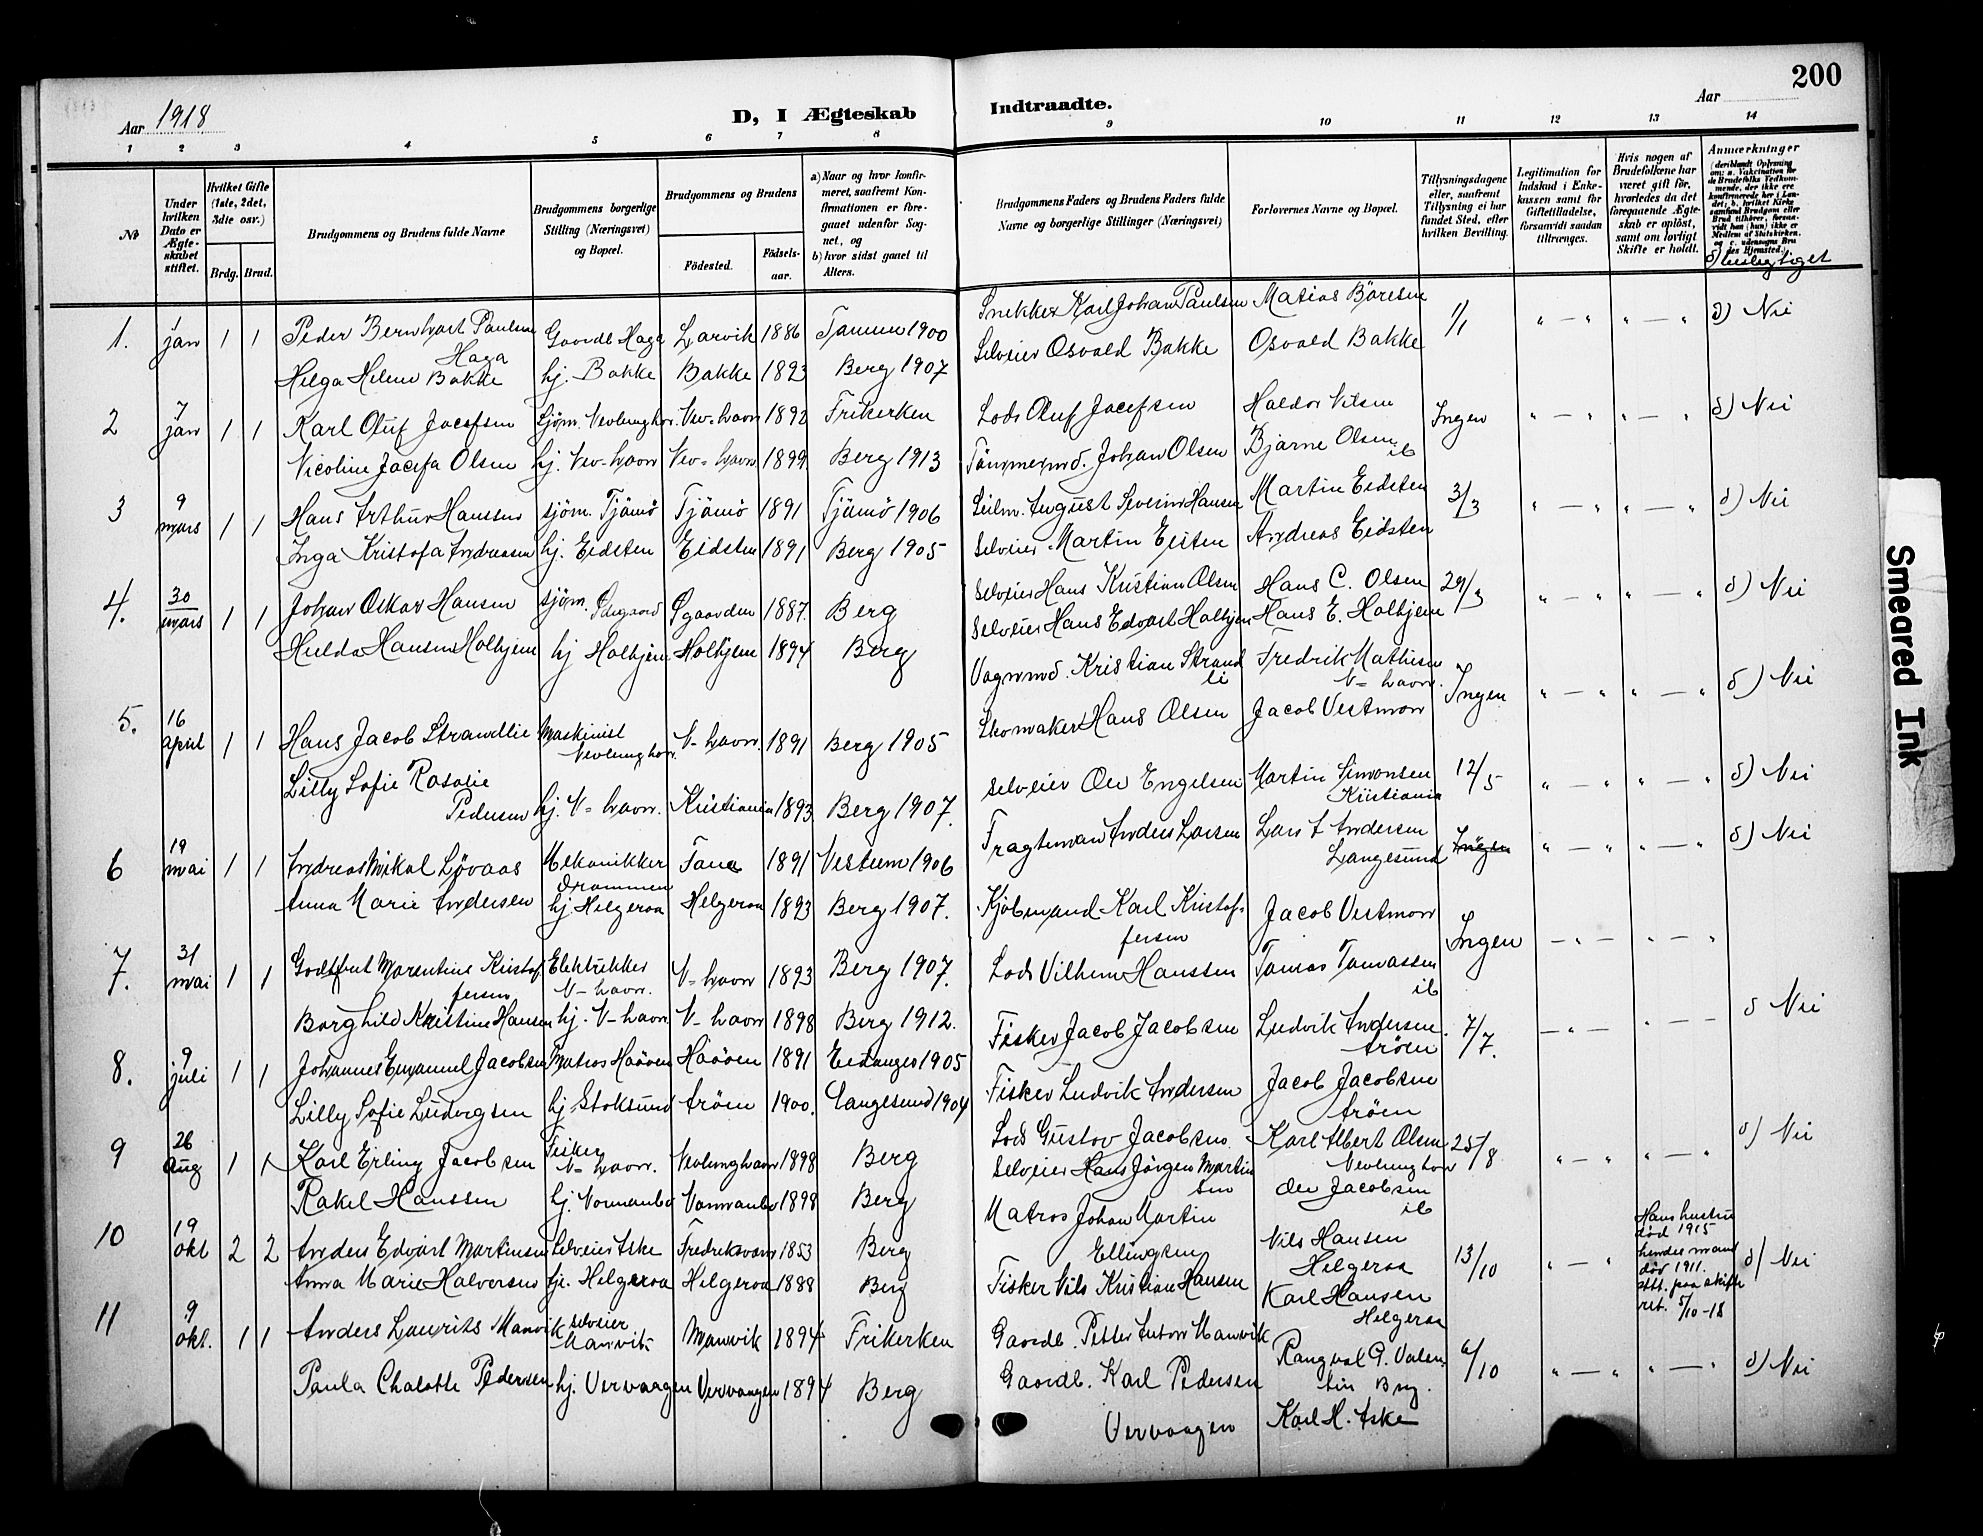 200
Aar 1918
D, I Ægteskab Indtraadte.
Aar
1 2 3 4 5 6 7 8 9 10 11 12 13 14
No
Under hvilken Dato er Ægteskabet stiftet.
Hvilket Gifte (1ste, 2det, 3die osv.)
Brdg. Brud.
Brudgommens og Brudens fulde Navne
Brudgommens borgerlige Stilling (Næringsvei) og Bopæl.
Brudgommens og Brudens
Födested.
Födselsaar.
a) Naar og hvor konfirmeret, saafremt Konfirmationen er foregaaet udenfor Sognet, og
b) hvor sidst gaaet til Alters.
Brudgommens Faders og Brudens Faders fulde Navne og borgerlige Stillinger (Næringsvei)
Forlovernes Navne og Bopæl.
Tillysningsdagene eller, saafremt Tillysning ei har fundet Sted, efter hvilken Bevilling.
Legitimation for Indskud i Enkekassen samt for Giftetilladelse, forsaavidt saadan tiltrænges.
Hvis nogen af Brudefolkene har været gift før, hvorledes da det foregaaende Ægteskab er opløst, samt om lovligt Skifte er holdt.
Anmærkninger
1. 1 jan 1 1 Peder Bernhart Paulsen Haga Gaardb. Haga Larvik 1886 Tanum 1900 Snekker Karl Johan Paulsen Matias Børesen 1/1 " — " " — " d) Nei
Helga Helene Bakke hj. Bakke Bakke 1893 Berg 1907 Selveier Osvald Bakke Osvald Bakke
2 7 jan 1 1 Karl Oluf Jacofsen Sjøm. Nevlunghavn Nev-havn 1892 Frikerken Lods Oluf Jacofsen Haldor Nilsen Ingen " — " " — " d) Nei
Nicoline Jacefa Olsen hj. Nev-havn Nev-havn 1899 Berg 1913 Tømmermd. Johan Olsen Bjarne Olsen ib
3 9 mars 1 1 Hans Arthur Hanssen sjøm. Tjømø Tjømø 1891 Tjømø 1906 Seilm. August Severin Hansen Martin Eidsten 3/3 " — " " — " d) Nei
Inga Kristofa Andreasen hj. Eidsten Eidsten 1891 Berg 1905 Selveier Martin Eisten Andreas Eidsten
4. 30 mars 1 1 Johan Oskar Hansen sjøm. Ødegaard Øgaarden 1887. Berg Selveier Hans Kristian Olsen Hans C. Olsen 29/3 " — " " — " d) Nei
Hulda Hansen Holhjem hj Holhjem Holhjem 1894 Berg Selveier Hans Edvart Holhjem Hans E. Holhjem
5. 16 april 1 1 Hans Jacob Strandlie Maskinist Nevlunghavn N-havn. 1891 Berg 1905 Vognmd. Kristian Strandli Fredrik Mathisen N-havn. Ingen " — " " — " d) Nei
Lilly Sofie Rosalie Pedersen hj. N-havn. Kristiania 1893 Berg 1907. Skomaker Hans Olsen Jacob Vestmoen
6 19 mai 1 1 Andreas Mikal Løvaas Mekanikker Drammen Fana 1891 Vestum 1906 Selveier Ole Engelsen Martin Simonsen Kristiania 12/5 " — " " — " d) Nei
Anna Marie Andersen hj Helgeroa Helgeroa 1893 Berg 1907. Fragtmand Anders Larsen Lars L Andersen Langesund Ingen " — " " — " d) Nei
7. 31 mai 1 1 Godtfret Marentius Kristoffersen Elektrikker N-havn. N-havn 1893 Berg 1907. Kjøbmand Karl Kristoffersen Jacob Vestmoen Ingen — " — " — "
Borghild Kristine Hansen hj. N-havn N-havn 1898 Berg 1912. Lods Vilhem Hanssen Tomas Tomassen ib
8. 9 juli 1 1 Johannes Emanuel Jacobsen Matros Haaøen Haaøen 1891 Eidanger 1905 Fisker Jacob Jacobsen Ludvik Andersen Arøen 7/7. — " — " — — d Nei
Lilly Sofie Ludvigsen hj Stoksund Arøen 1900. Langesund 1904 Fisker Ludvik Andersen Jacob Jacobsen Arøen
9 26 Aug 1 1 Karl Erling Jacobsen Fisker N-havn. Nevlunghavn 1898 Berg Lods Gustav Jacobsen Karl Albert Olsen Nevlunghavn 25/8 " — " " — " d) Nei
Rakel Hanssen hj. Vormanbo Vormanbo 1898 Berg Selveier Hans Jørgen Martinsen Ole Jacobsen ib
10 19 okt 2 2 Anders Edvart Martinsen Selveier Aske Fredriksværn 1853 Berg Matros Johan Martin Ellingsen Nils Hansen Helgeroa 13/10 " — " Hans hustru død 1915 hendes mand død 1911. Att. paa skifteret. 5/10-18 d) Nei
Anna Marie Halversen tj. Helgeroa Helgeroa 1888 Berg Fisker Nils Kristian Hansen Karl Hansen Helgeroa
11 9 okt. 1 1 Anders Laurits Manvik selveier Manvik Manvik 1894 Frikerken Gaardb. Petter Anton Manvik Rangval G. Valentin Brg. 6/10 " — " " — " d) Nei
Paula Chalotte Pedersen hj. Vervaagen Vervaagen 1894 Berg Gaardb. Karl Pedersen Vervaagen Karl H. Aske
Smeared Ink